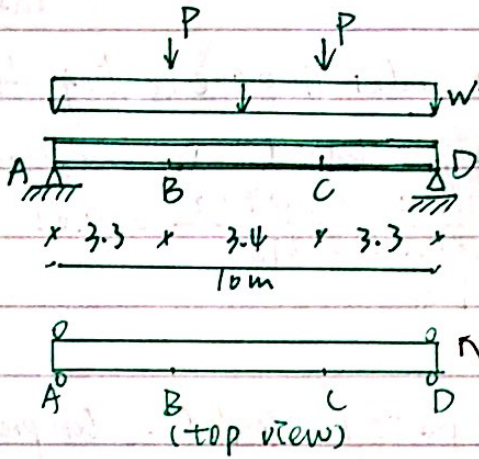 P P
W
A B C D
x 3.3 x 3.4 x 3.3 x
10m
A B C D
(top view)